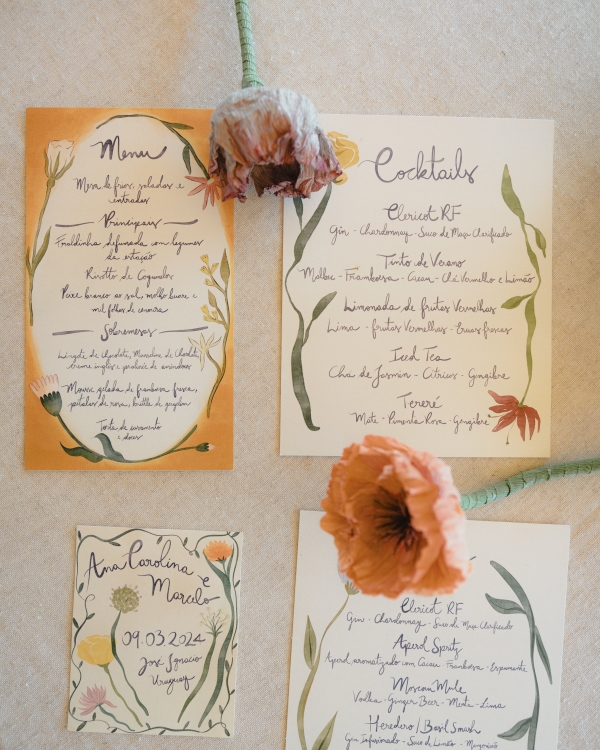 Menu
Mesa de frios, saladas e
entradas
Principais
Fraldinha defumada com legumes
da estação
Risotto de Cogumelos
Peixe branco ao sal, molho buerre e
mil folhas de cenoura
Sobremesas
de Chocolate, de Chocolate
creme inglês e praliné de amêndoas
Mousse gelada de framboesa fresca,
pétalas de rosa, brittle de
Torta de casamento
e doces
Cocktails
Clericot RF
Gin - Chardonnay - Suco de Maça Clarificado
Tinto de Verano
Malbec - Framboesa - Cacau - Chá Vermelho e Limão
Limonada de frutas Vermelhas
Lima - frutas Vermelhas - Ervas frescas
Iced Tea
Cha de Jasmin - Citricos - Gengibre
Tereré
Mate - Pimenta Rosa - Gengibre
Ana Carolina e
Marcelo
09.03.2024
José Ignacio
Uruguay
Clericot RF
Gin - Chardonnay - Suco de Maça Clarificado
Aperol Spritz
Aperol aromatizado com Cacau Framboesa - Espumante
Moscow Mule
Vodka - Ginger Beer - Mate - Lima
Heredero / Basil Smash
Gin Infusionado - Suco de Limão -